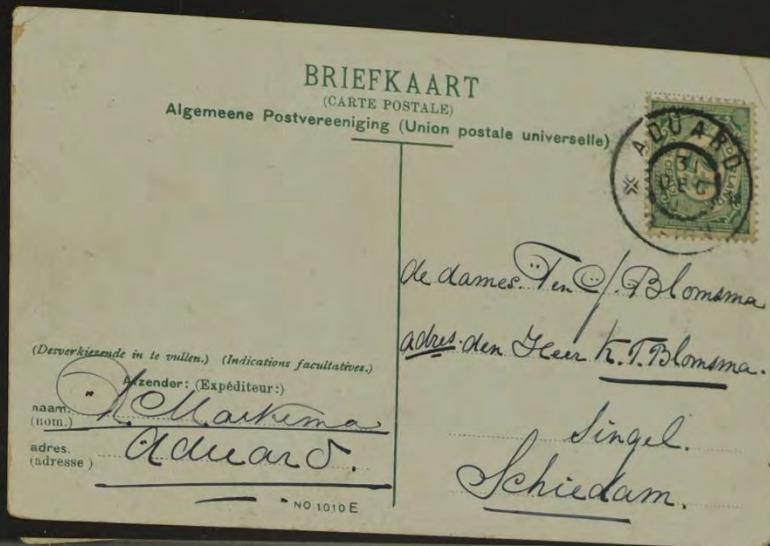 BRIEFKAART
(CARTE POSTALE)
Algemeene Postvereeniging (Union postale universelle)
ADUARD
31
DEC
de dames. T en J. Blomsma
adres. den Heer K. T. Blomsma.
Singel.
Schiedam.
(Desverkiezende in te vullen.) (Indications facultatives.)
Afzender: (Expéditeur:)
naam. Markema
(nom.)
adres. Aduard.
(adresse)
NO 1010 E